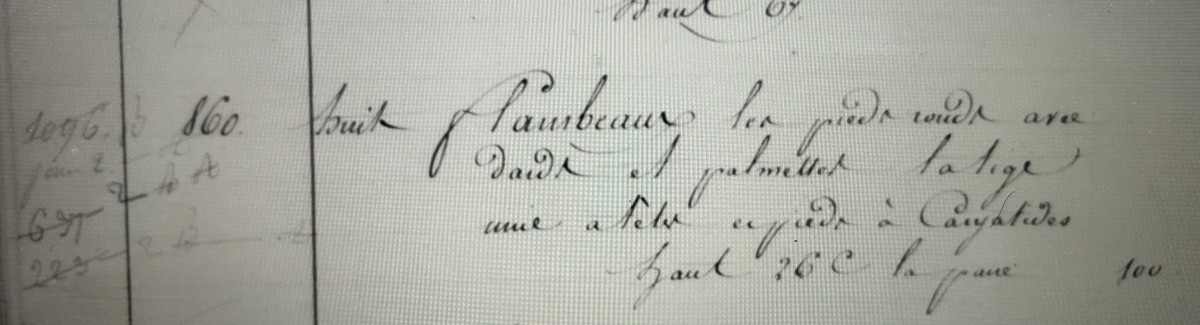 haut 67
1096. B 860. huit flambeaux les pieds ronds avec
dards et palmettes la tige
unie a têtes et pieds à Caryatides
637
223 2 B
haut 26 C la paire 100